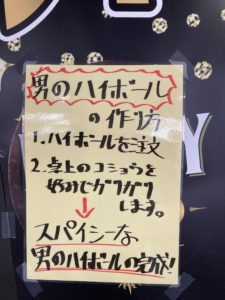 男のハイボール
の作り方
1. ハイボールを注文
2. 卓上のコショウを
好みでガリガリ
します。
↓
スパイシーな
男のハイボールの完成!